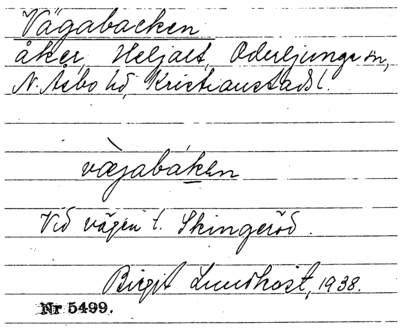 Vägabacken
åker, Heljalt, Oderljunga sn,
N. Åsbo hd, Kristianstads l.
vægabáken
Vid vägen t. Skingeröd.
Birgit Lundkvist, 1938.
Nr 5499.